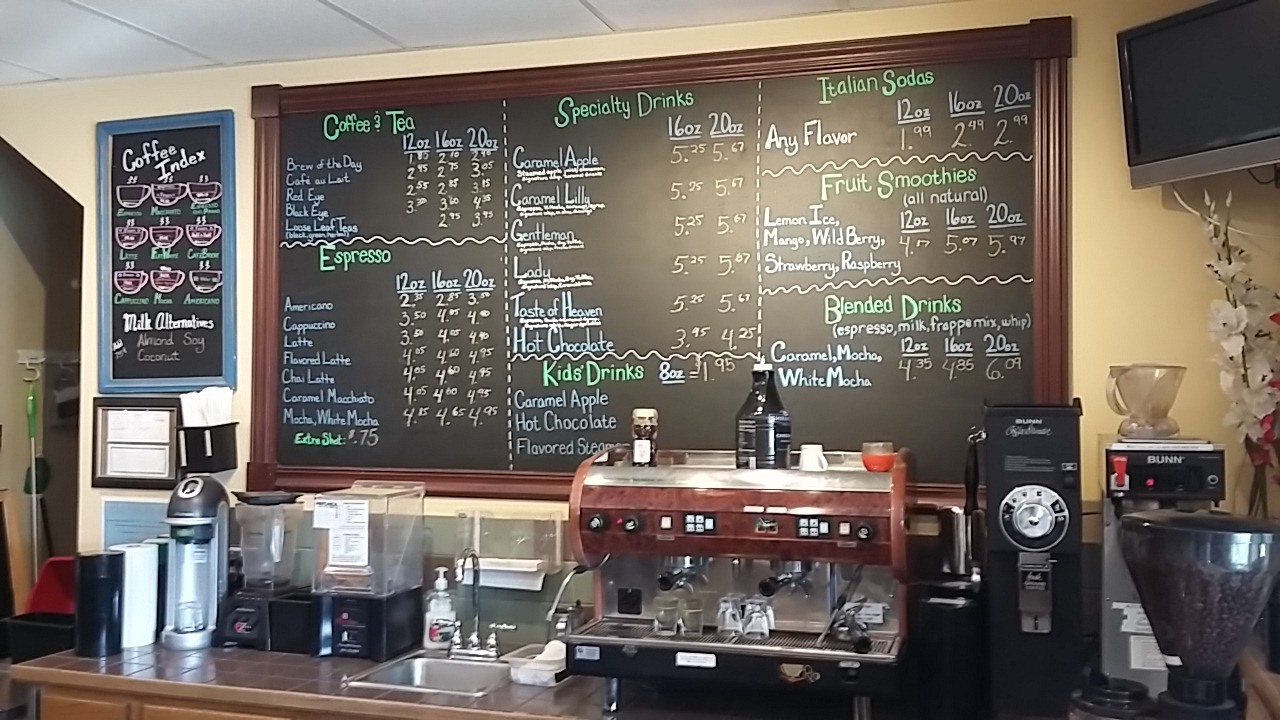 Coffee
Index
Espresso Macchiato
Latte Cafe Breve
Cappuccino Mocha Americano
Milk Alternatives
Almond Soy
Coconut
Coffee & Tea
12oz 16oz 20oz
Brew of the Day 1.85 2.10 2.40
Café au Lait 2.45 2.75 3.05
Red Eye 2.55 2.85 3.15
Black Eye 3.30 3.60 4.35
Loose Leaf Teas 2.95 3.95
(black, green, herbal)
Espresso
12oz 16oz 20oz
Americano 2.35 2.85 3.50
Cappuccino 3.50 4.05 4.40
Latte 3.50 4.05 4.40
Flavored Latte 4.05 4.60 4.95
Chai Latte 4.05 4.60 4.95
Caramel Macchiato 4.05 4.60 4.95
Mocha, White Mocha 4.15 4.65 4.95
Extra Shot: $.75
Specialty Drinks
16oz 20oz
Caramel Apple 5.25 5.67
Caramel Lilly 5.25 5.67
Gentleman 5.25 5.67
Lady 5.25 5.67
Taste of Heaven 5.25 5.67
Hot Chocolate 3.95 4.25
Kids' Drinks 8oz = $1.95
Caramel Apple
Hot Chocolate
Flavored Steam
Italian Sodas
12oz 16oz 20oz
Any Flavor 1.99 2.49 2.99
Fruit Smoothies
(all natural)
Lemon Ice, 12oz 16oz 20oz
Mango, Wild Berry, 4.17 5.07 5.97
Strawberry, Raspberry
Blended Drinks
(espresso, milk, frappe mix, whip)
Caramel, Mocha, 12oz 16oz 20oz
White Mocha 4.35 4.85 6.09
BUNN
BUNN